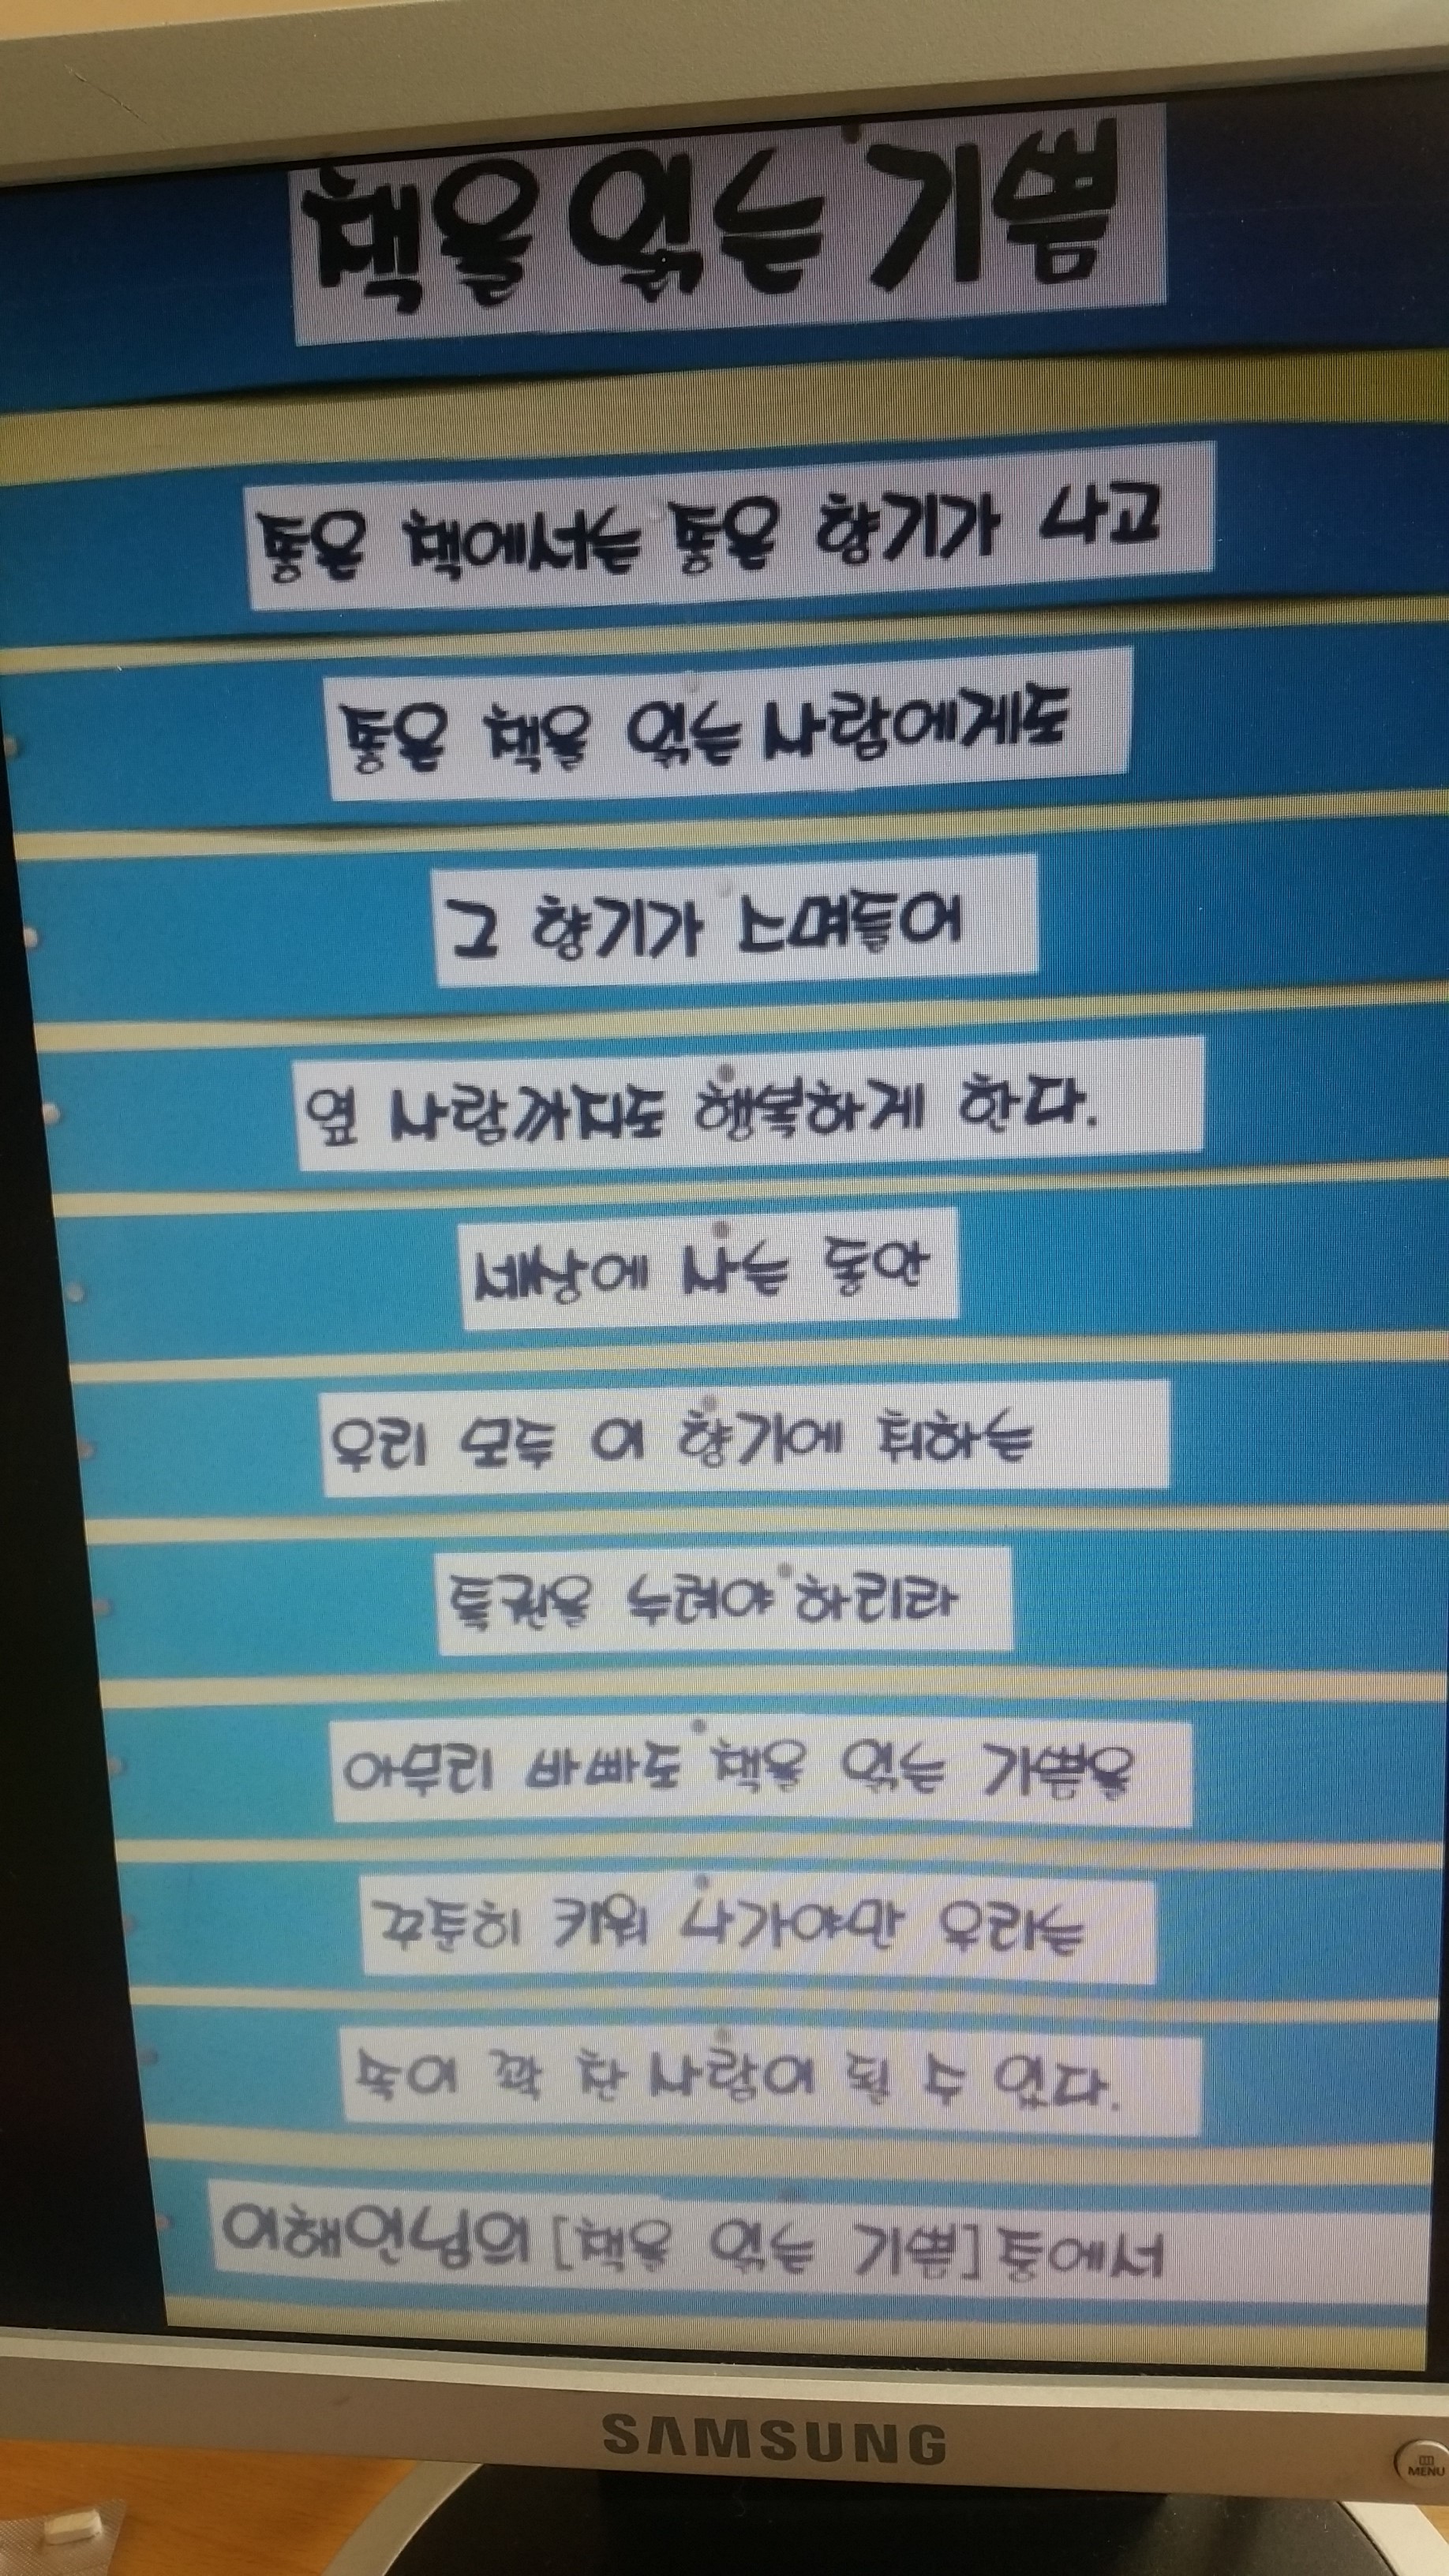 책을 읽는 기쁨
좋은 책에서는 좋은 향기가 나고
좋은 책을 읽는 사람에게도
그 향기가 스며들어
옆 사람까지도 행복하게 한다.
세상에 사는 동안
우리 모두 이 향기에 취하는
특권을 누려야 하리라
아무리 바빠도 책을 읽는 기쁨을
꾸준히 키워 나가야만 우리는
속이 꽉 찬 사람이 될 수 있다.
이해인님의 [책을 읽는 기쁨]중에서
SAMSUNG
MENU